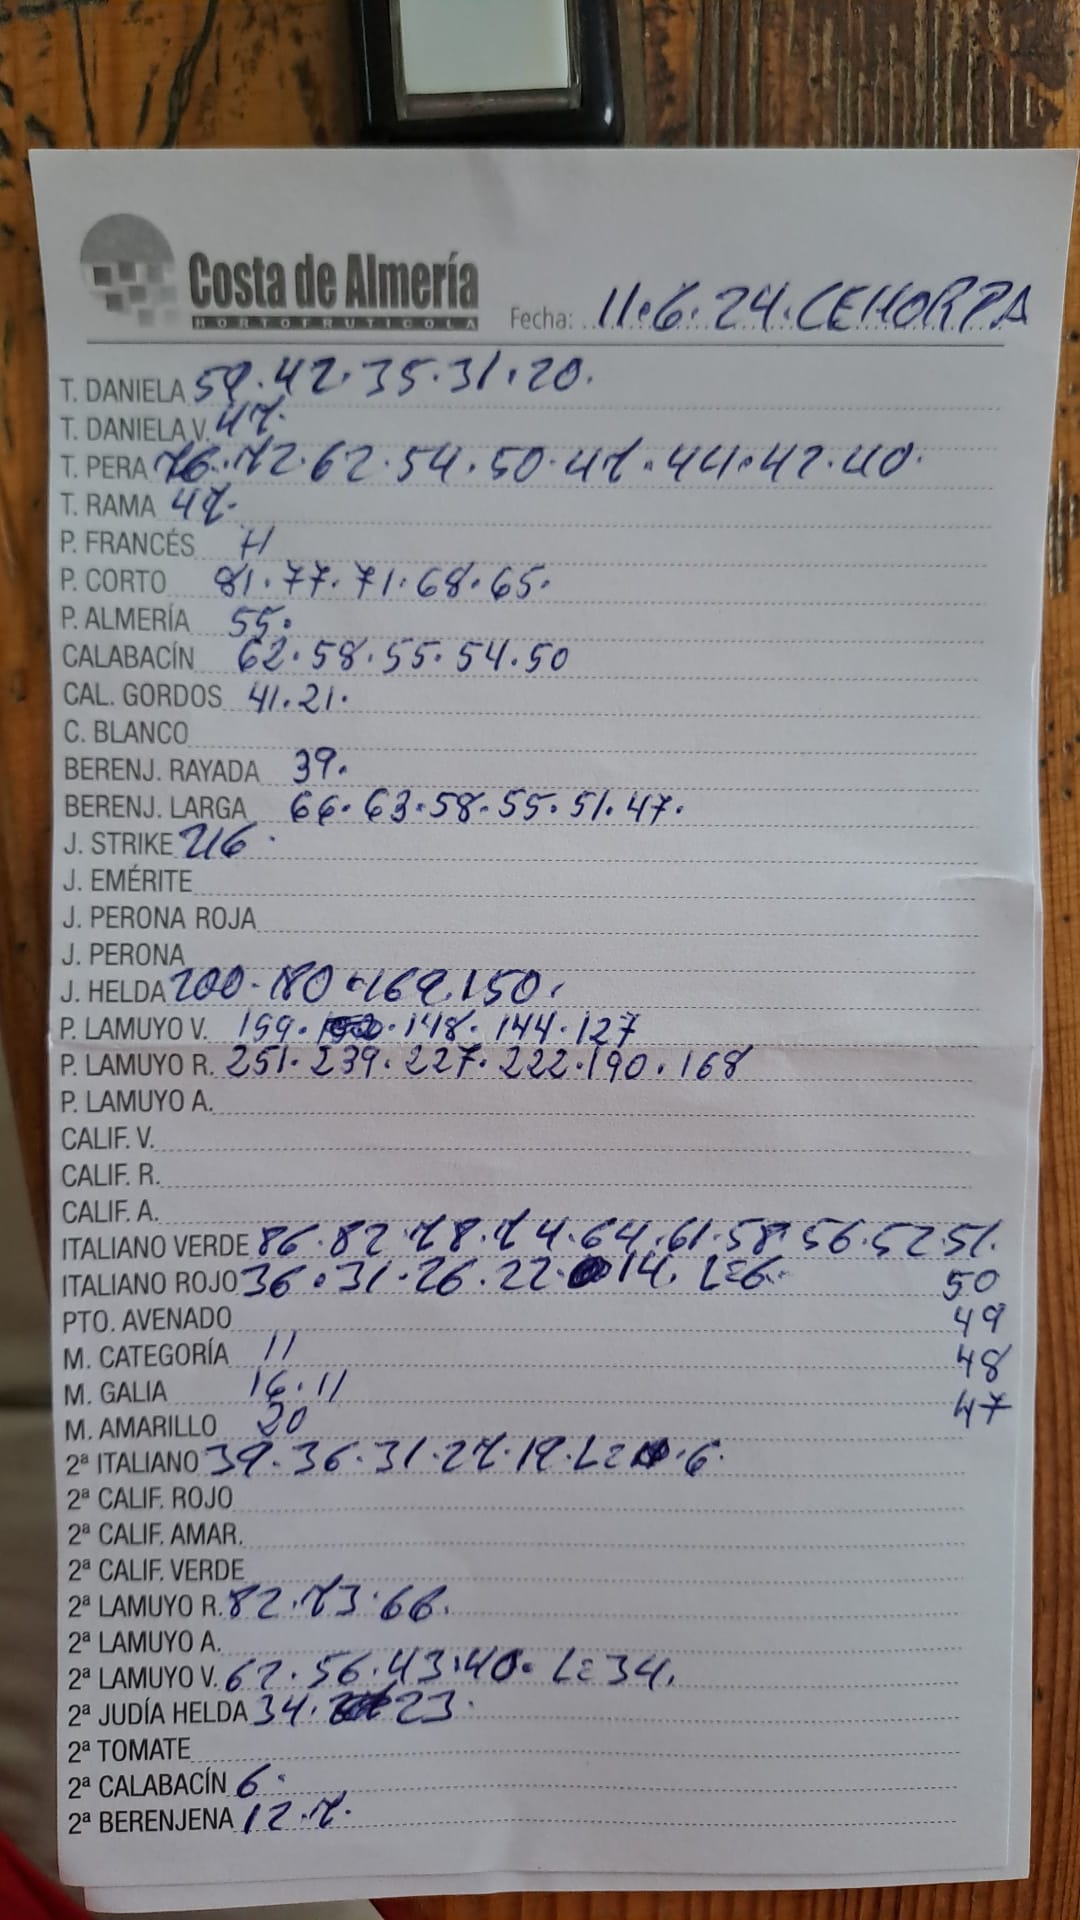 Costa de Almería
HORTOFRUTICOLA
Fecha: 11.6.24.CEHORPA
T. DANIELA 59.42.35.31.20.
T. DANIELA V. 47.
T. PERA 76.72.62.54.50.47.44.42.40.
T. RAMA 47.
P. FRANCÉS
P. CORTO 81.77.71.68.65.
P. ALMERÍA 55.
CALABACÍN 62.58.55.54.50
CAL. GORDOS 41.21.
C. BLANCO
BERENJ. RAYADA 39.
BERENJ. LARGA 66.63.58.55.51.47.
J. STRIKE 216.
J. EMÉRITE
J. PERONA ROJA
J. PERONA
J. HELDA 200.180.169.150.
P. LAMUYO V. 159.148.144.127
P. LAMUYO R. 251.239.227.222.190.168
P. LAMUYO A.
CALIF. V.
CALIF. R.
CALIF. A.
ITALIANO VERDE 86.82.78.74.64.61.58.56.52.51.
ITALIANO ROJO 36.31.26.22.14. L=6. 50
PTO. AVENADO 49
M. CATEGORÍA 11 48
M. GALIA 16.11 47
M. AMARILLO 20
2ª ITALIANO 39.36.31.27.19.L=6.
2ª CALIF. ROJO
2ª CALIF. AMAR.
2ª CALIF. VERDE
2ª LAMUYO R. 82.73.66.
2ª LAMUYO A.
2ª LAMUYO V. 62.56.43.40. L=34.
2ª JUDÍA HELDA 34.23.
2ª TOMATE
2ª CALABACÍN 6.
2ª BERENJENA 12.7.